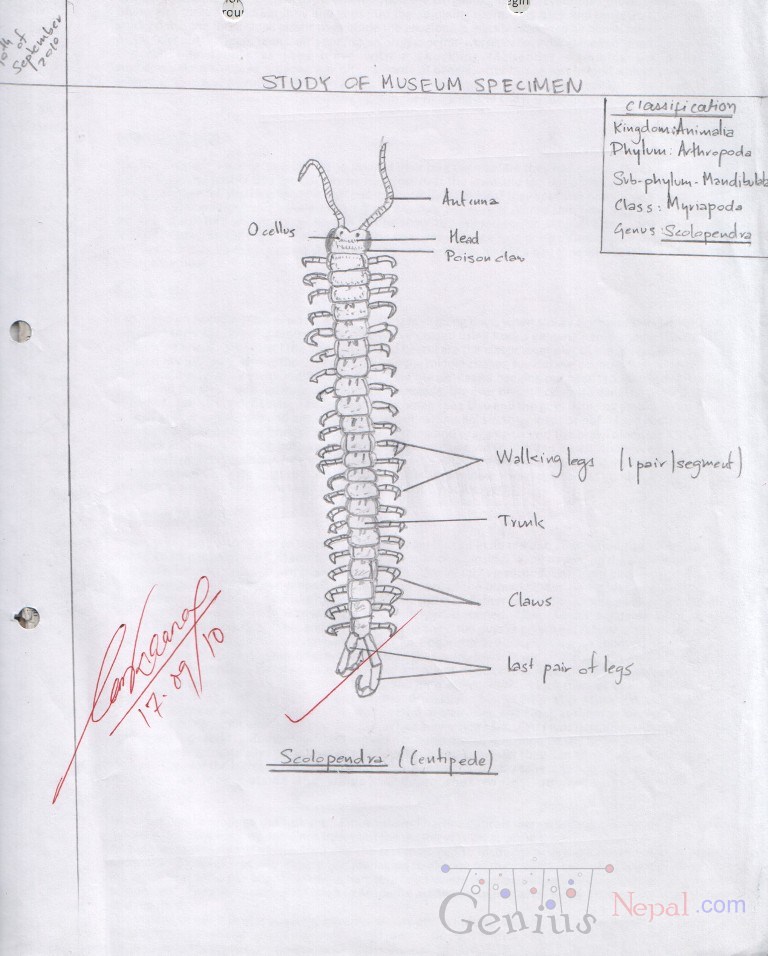 10th of
September
2010
STUDY OF MUSEUM SPECIMEN
Classification
Kingdom: Animalia
Phylum: Arthropoda
Sub-phylum - Mandibula
Class: Myriapoda
Genus: Scolopendra
Antenna
Ocellus
Head
Poison claw
Walking legs (1 pair/segment)
Trunk
Claws
last pair of legs
17.09/10
Scolopendra (Centipede)
Genius Nepal.com